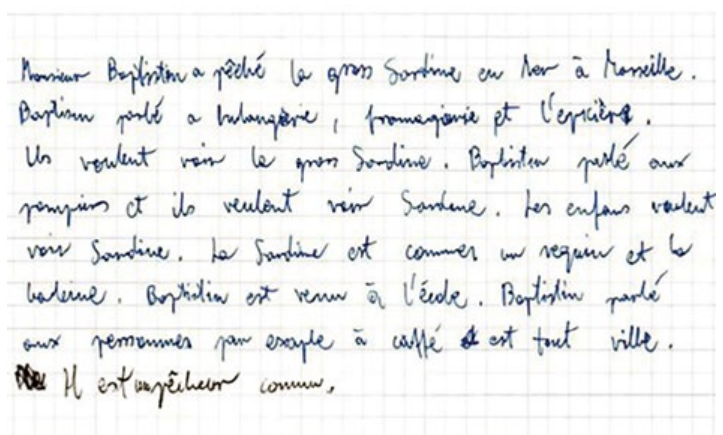 Monsieur Baptistin a pêché la gross Sardine en Mer à Marseille.
Baptisin parlé a bulangèrie, fromagerie et l'epicièrs.
Ils veulent voir la gross Sardine. Baptisten parlé aux
pompiers et ils veulent voir Sardene. Les enfans veulent
voir Sardine. La Sardine est commes un requin et la
baleine. Baptistin est venu à l'école. Baptistin parlé
aux personnes par exaple à caffé est tout ville.
Il est un pêcheur connu.